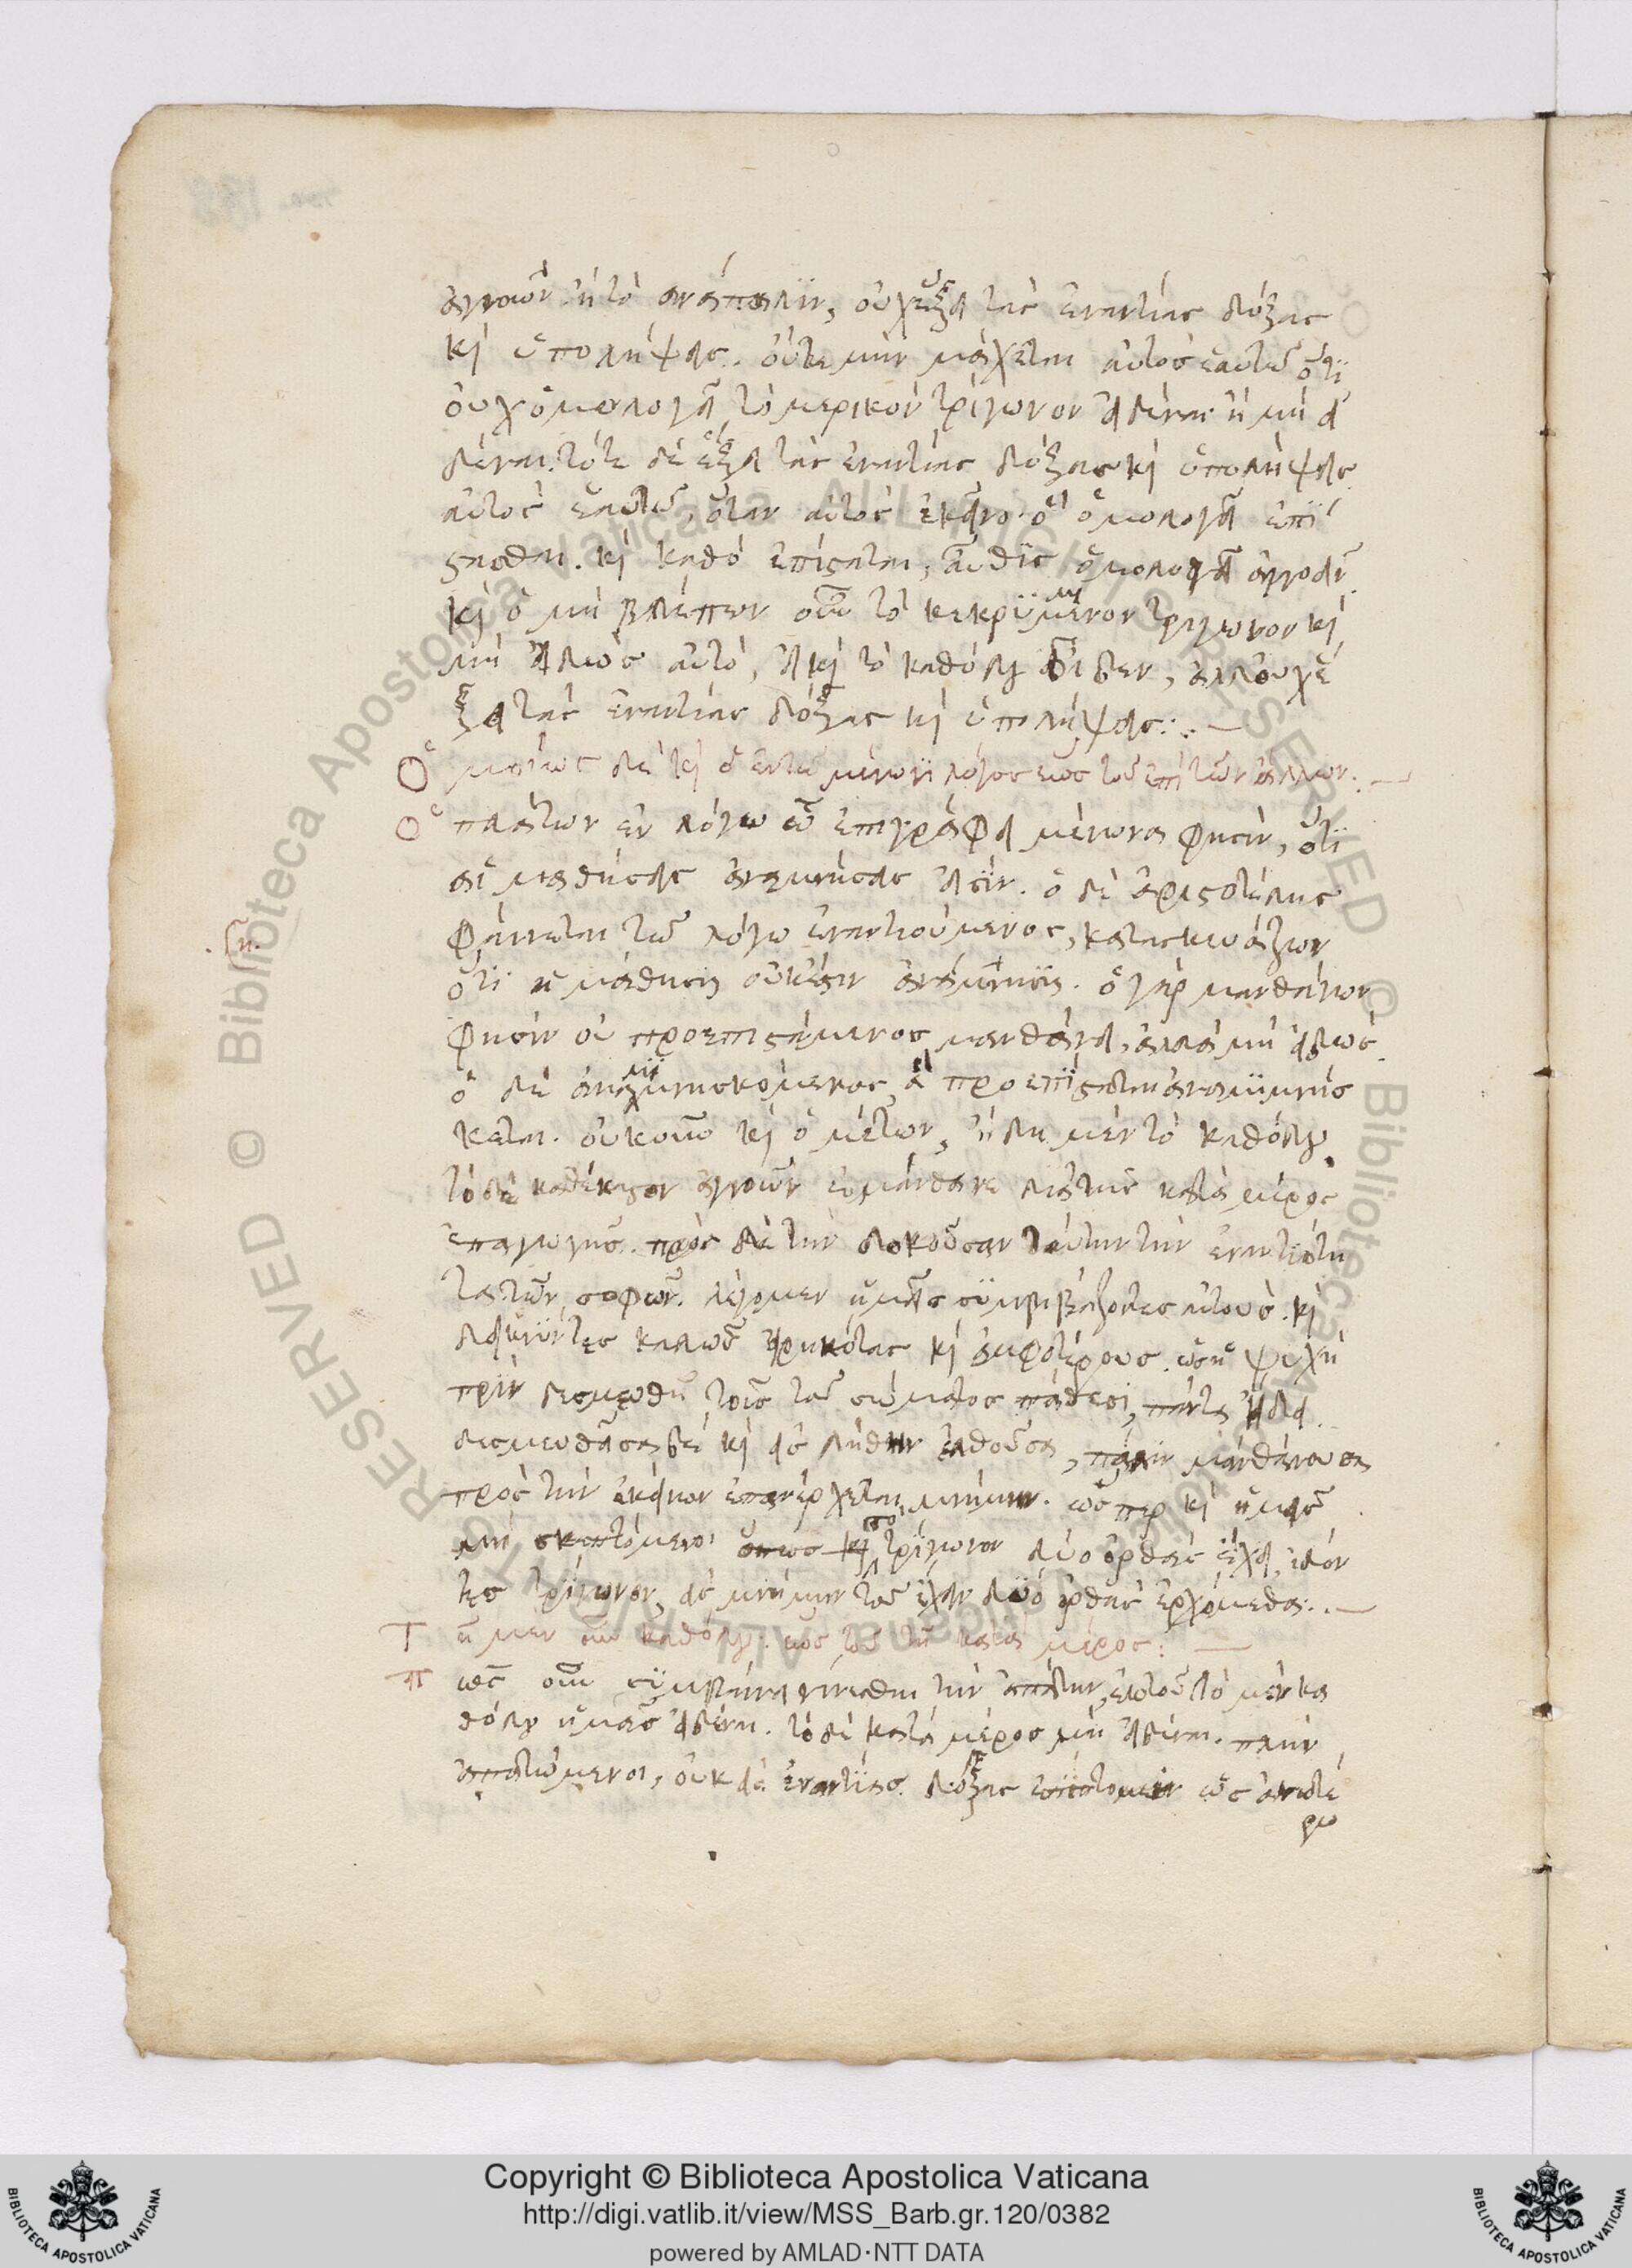 ἀγνοῶν. ἢ τὸ ἀνάπαλιν, οὐχ ἕξει τὰς ἐναντίας δόξας
κὶ ὑπολήψεις. οὔτε μὴν μάχεται αὐτὸς ἑαυτῶ ὅτι
οὐχ ὁμολογεῖ τὸ μερικὸν τρίγωνον εἰδέναι ἢ μὴ εἰ
δέναι. τότε δὲ ἕξει τὰς ἐναντίας δόξας κὶ ὑπολήψεις
αὐτὸς ἑαυτῶ, ὅταν αὐτὸς ἐκεῖνο ὃ ὁμολογεῖ ἐπί
στασθαι. κὶ καθὸ ἐπίσταται, αὖθις ὁμολογεῖ ἀγνοεῖν
κὶ ὁ μὴ βλέπων οὖν τὸ κεκρυμμένον τρίγωνον κὶ
μὴ εἰδὼς αὐτὸ, εἰ κὶ τὸ καθόλου οἶδεν, ἀλλ' οὐχ ἕ
ξει τὰς ἐναντίας δόξας κὶ ὑπολήψεις:.
Ὁμοίως δὲ κὶ ὁ ἐν τῶ μένωνι λόγος ἕως τοῦ ἐπὶ τῶν ἄλλων.
Ὁ πλάτων ἐν λόγω ὧ ἐπιγράφει μένωνα φησὶν, ὅτι
αἱ μαθήσεις ἀναμνήσεις εἰσίν. ὁ δὲ ἀριστοτέλης
φαίνεται τῶ λόγω ἐναντιούμενος, κατασκευάζων
ὅτι ἡ μάθησις οὐκ ἔστιν ἀνάμνησις. ὁ γὰρ μανθάνων
φησὶν οὐ προεπιστάμενος μανθάνει, ἀλλὰ μὴ εἰδώς.
ὁ δὲ ἀναμιμνησκόμενος, ἃ προεπίσταται ἀναμιμνήσ
κεται. οὐκοῦν κὶ ὁ μένων, ἤδει μὲν τὸ καθόλου,
τὸ δὲ καθέκαστον ἀγνοῶν ἐμάνθανε διὰ τῆς κατὰ μέρος
ἐπαγωγῆς. πρὸς δὲ τὴν δοκοῦσαν ταύτην τὴν ἐναντιότη
τα τῶν σοφῶν. λέγομεν ἡμεῖς συμβιβάζοντες αὐτούς. κὶ
δεικνύντες καλῶς εἰρηκότας κὶ ἀμφοτέρους. ὡς ἡ ψυχὴ
πρὶν δεσμευθῆ τοῖς τοῦ σώματος πάθεσι, πάντα ἤδει.
δεσμευθεῖσα δὲ κὶ εἰς λήθην ἐλθοῦσα, πάλιν μανθάνουσα
πρὸς τὴν ἐκείνων ἐπανέρχεται μνήμην. ὥσπερ κὶ ἡμεῖς
μὴ σκεπτόμενοι ὅπως κὶ τὸ τρίγωνον δύο ὀρθὰς ἔχει, ἰδόν
τες τρίγωνον, εἰς μνήμην τοῦ ἔχειν δύο ὀρθὰς ἐρχόμεθα:.
Τῆ μὲν οὖν καθόλου. ἕως τοῦ τῆ κατὰ μέρος:
πῶς οὖν συμβαίνει γίνεσθαι τὴν ἀπάτην, ἐκ τοῦ τὸ μὲν κα
θόλου ἡμᾶς εἰδέναι. τὸ δὲ κατὰ μέρος μὴ εἰδέναι. πλὴν
ἀπατώμενοι, οὐκ εἰς ἐναντίας δόξας ὡς ἀνωτέ
ρω
Copyright © Biblioteca Apostolica Vaticana
http://digi.vatlib.it/view/MSS_Barb.gr.120/0382
powered by AMLAD·NTT DATA